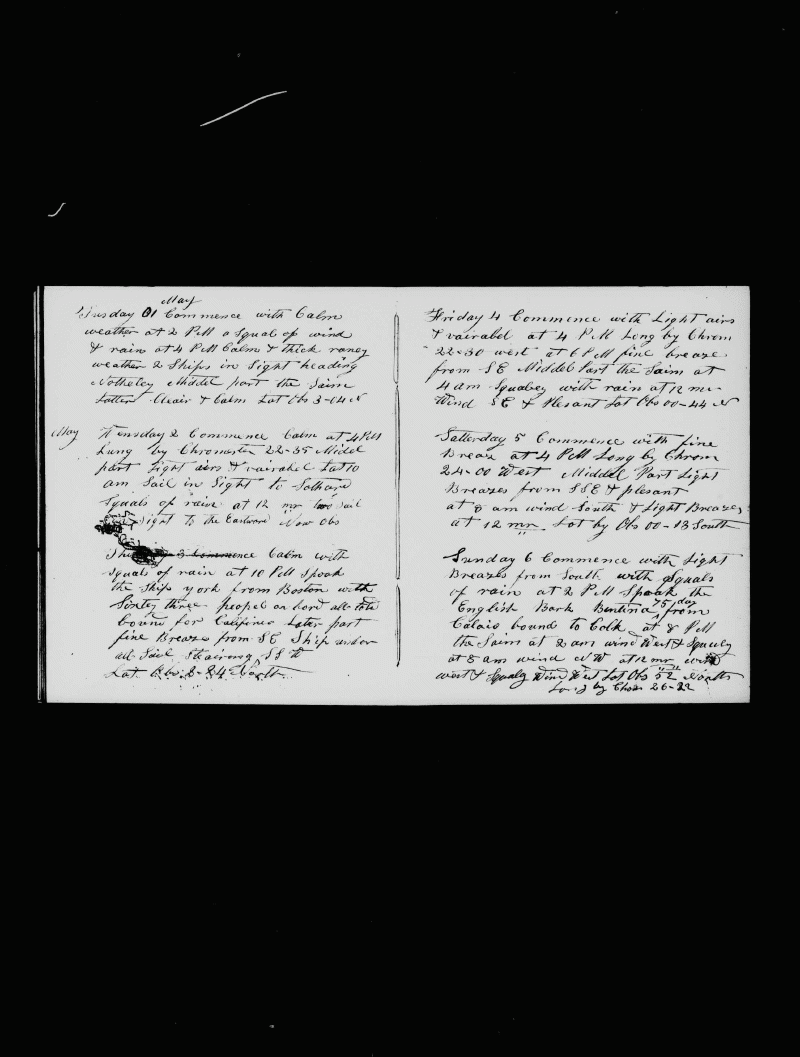 May
Tusday 01 Commence with Calm
weather at 2 PM a Squal of wind
& rain at 4 PM Calm & thick raney
weather 2 Ships in Sight heading
Notheley Middel part the Saim
Latter Cleair & Calm Lat Obs 3-04 N
May Wensday 2 Commence Calm at 4 PM
Long by Chromater 22-35 Middel
part Light airs & vairabel at 10
am Sail in Sight to Sothard
Squals of rain at 12 mr two Sail
Sight to the Eastward Now Obs
3 Commence Calm with
Squals of rain at 10 PM Spoak
the Ship york from Boston with
Sixtey three peopel on bord all told
bound for Califirnia Later part
fine Breaze from SE Ship under
all Sail Stairing SSW
Lat Obs 2-24 North
Friday 4 Commence with Light airs
& vairabel at 4 PM Long by Chrom
22-30 west at 6 PM fine breaze
from SE Middel Part the Saim at
4 am Squaley with rain at 12 mr
Wind SE & Plesant Lat Obs 00-44 N
Satterday 5 Commence with fine
Breaze at 4 PM Long by Chrom
24-00 West Middel Part Light
Breazes from SSE & plesant
at 8 am wind South & Light Breazes
at 12 mr Lat by Obs 00-13 South
Sunday 6 Commence with Light
Breazes from South with Squals
of rain at 2 PM Spoak the
English Bark 75 day from
Calais bound to Colk at 8 PM
the Saim at 2 am wind West & Squaly
at 8 am wind NW at 12 mr wind
west & Squaly Wind West Lat Obs 52 North
Long by Chro 26-22